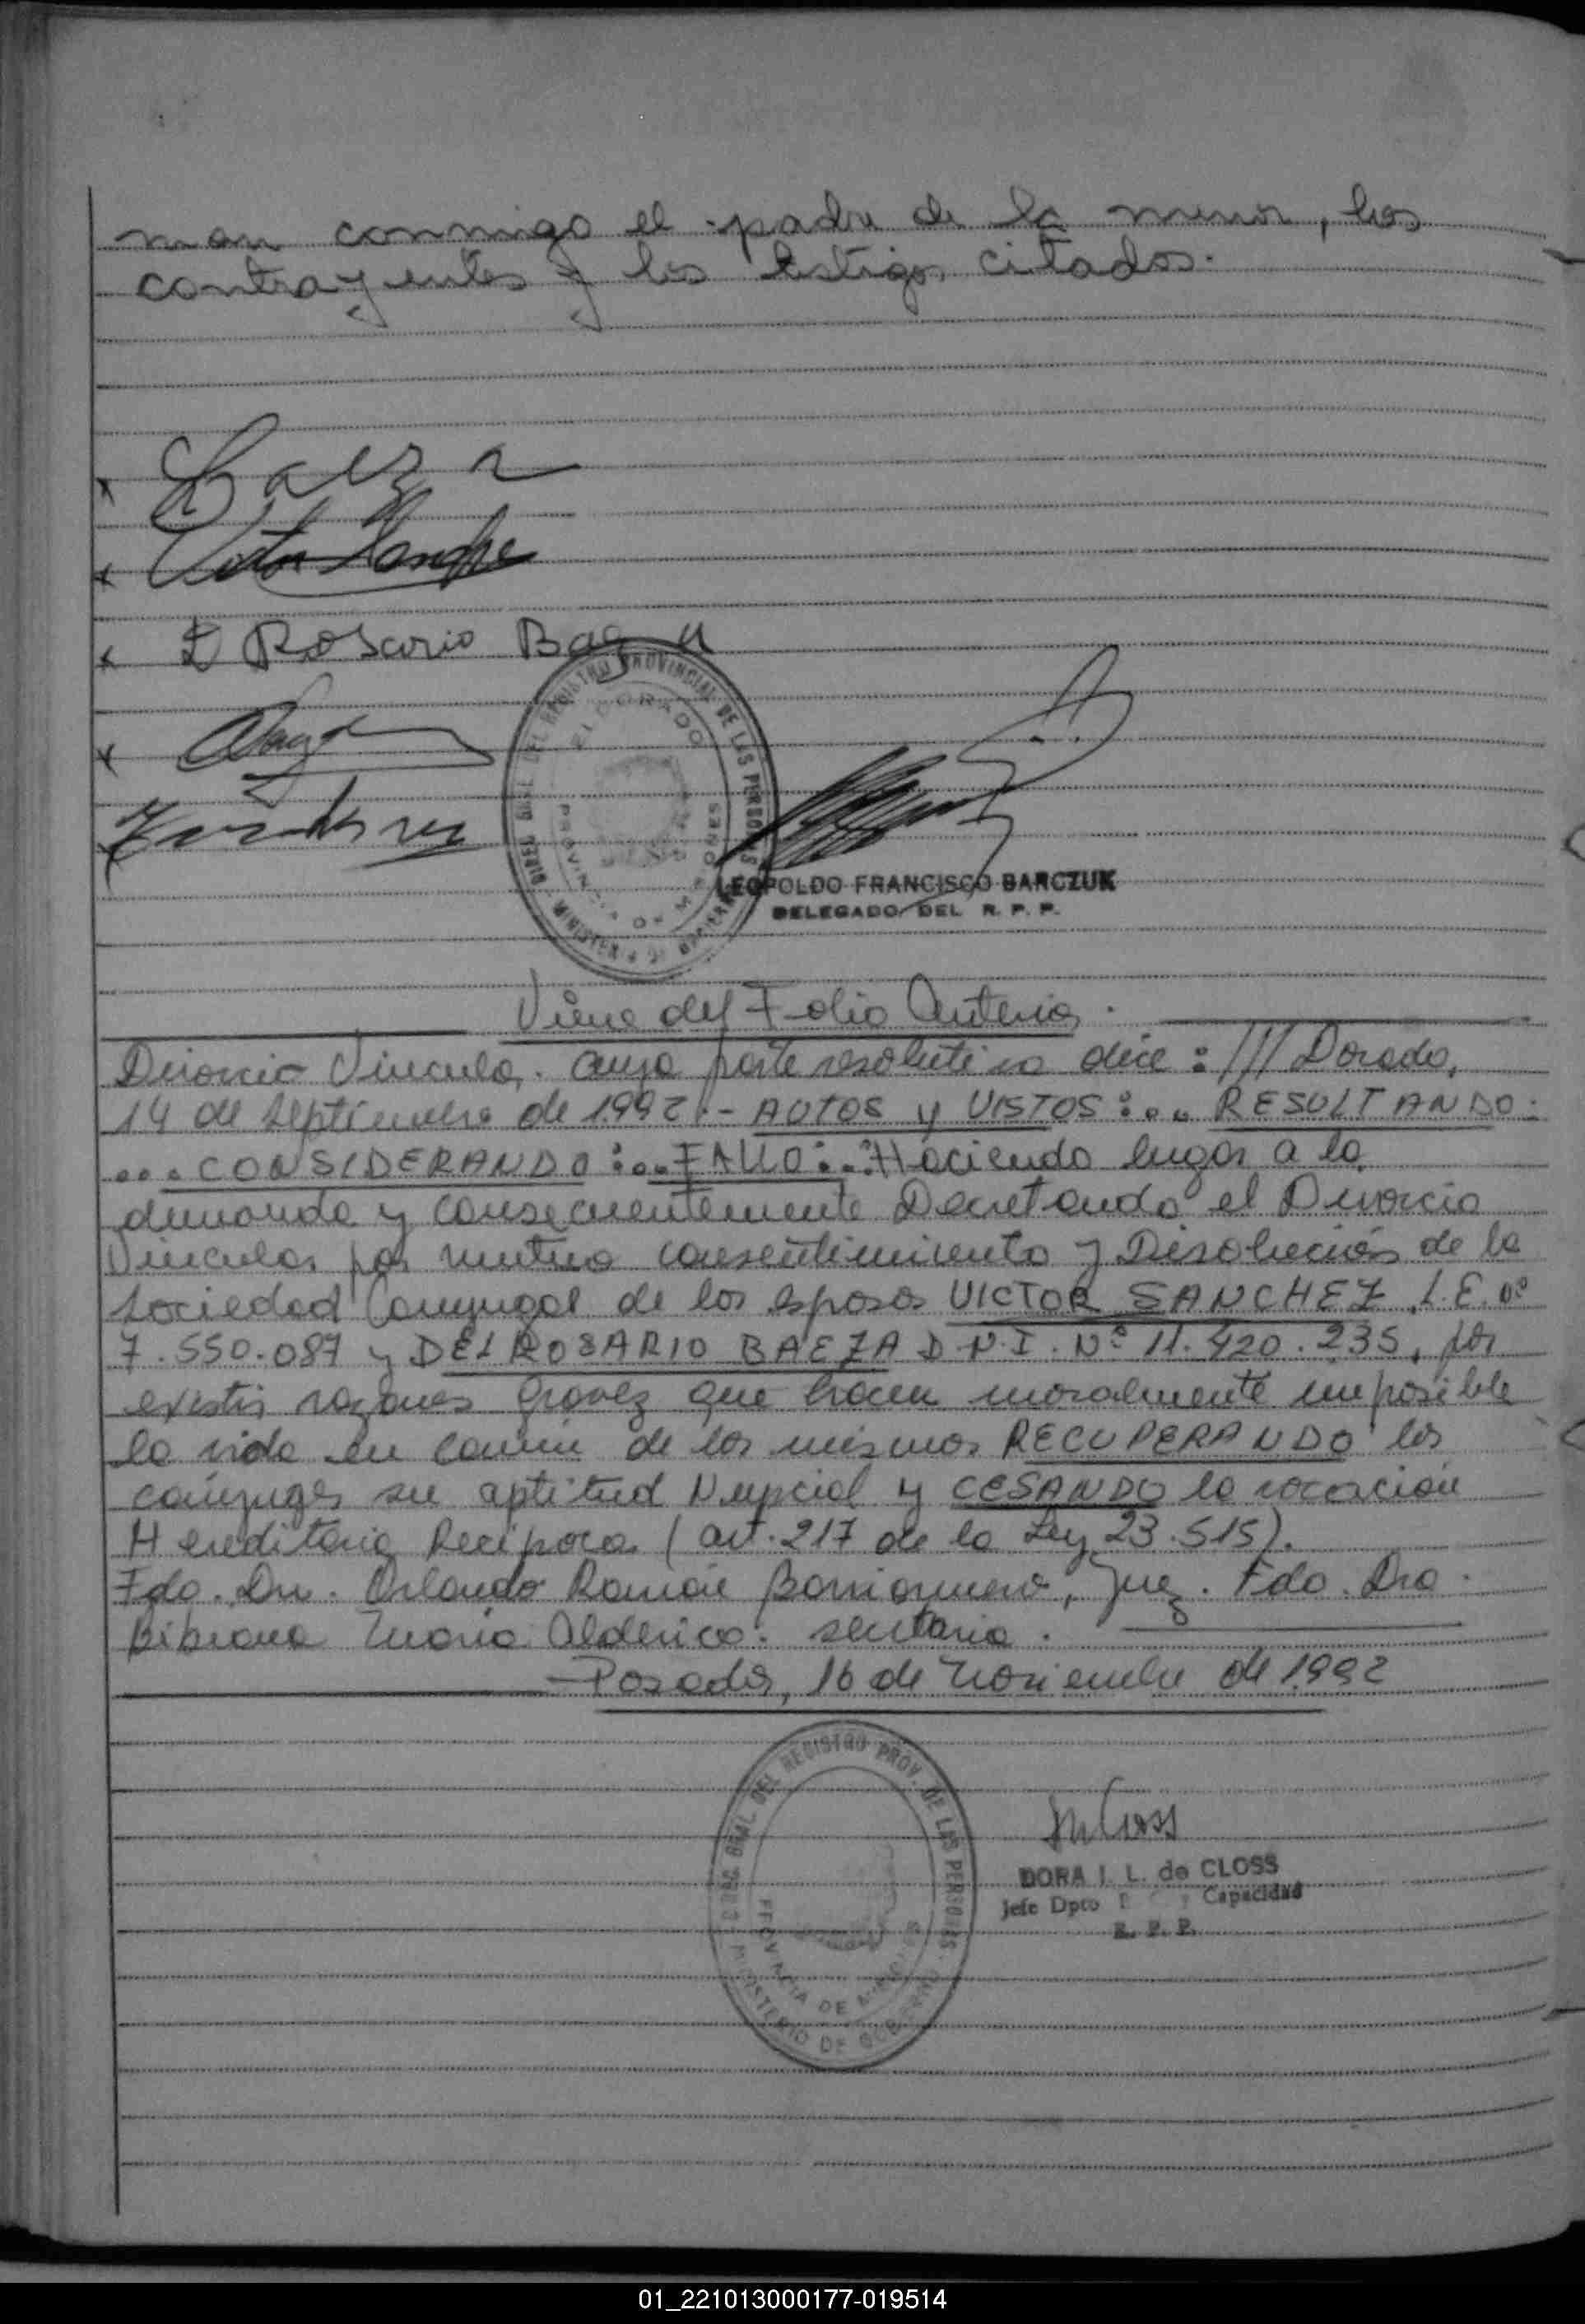 man conmigo el padre de la menor, los
contrayentes y los testigos citados.
Baeza
Victor Sanche
D Rosario Baeza
DIREC. GRAL. DEL REGISTRO PROVINCIAL DE LAS PERSONAS
ELDORADO
PROVINCIA DE MISIONES
LEOPOLDO FRANCISCO BARCZUK
DELEGADO DEL R. P. P.
Viene del Folio Anterior.
Divorcio Vincular. cuya parte resolutiva dice: /// Dorado,
14 de septiembre de 1.992.- AUTOS y VISTOS:... RESULTANDO:
... CONSIDERANDO:... FALLO:.. Haciendo lugar a la
demanda y consecuentemente Decretando el Divorcio
Vincular por mutuo consentimiento y Disolución de la
Sociedad Conyugal de los esposos VICTOR SANCHEZ L.E. nº
7.550.087 y DEL ROSARIO BAEZA D.N.I. Nº 11.420.235, por
existir razones gravez que hacen moralmente imposible
la vida en comun de los mismos RECUPERANDO los
cónyuges su aptitud Nupcial y CESANDO la vocación
Hereditaria Recípoca (art. 217 de la Ley 23.515).
Fdo. Dr. Orlando Ramón Barrionuevo, Juez. Fdo. Dra.
Bibiana Maria Alderico. secretaria.
Posadas, 16 de Noviembre de 1.992
DIREC. GRAL. DEL REGISTRO PROV. DE LAS PERSONAS
PROVINCIA DE MISIONES
MINISTERIO DE GOBIERNO
DORA I. L. de CLOSS
Jefe Dpto Capacidad
R. P. P.
01_221013000177-019514